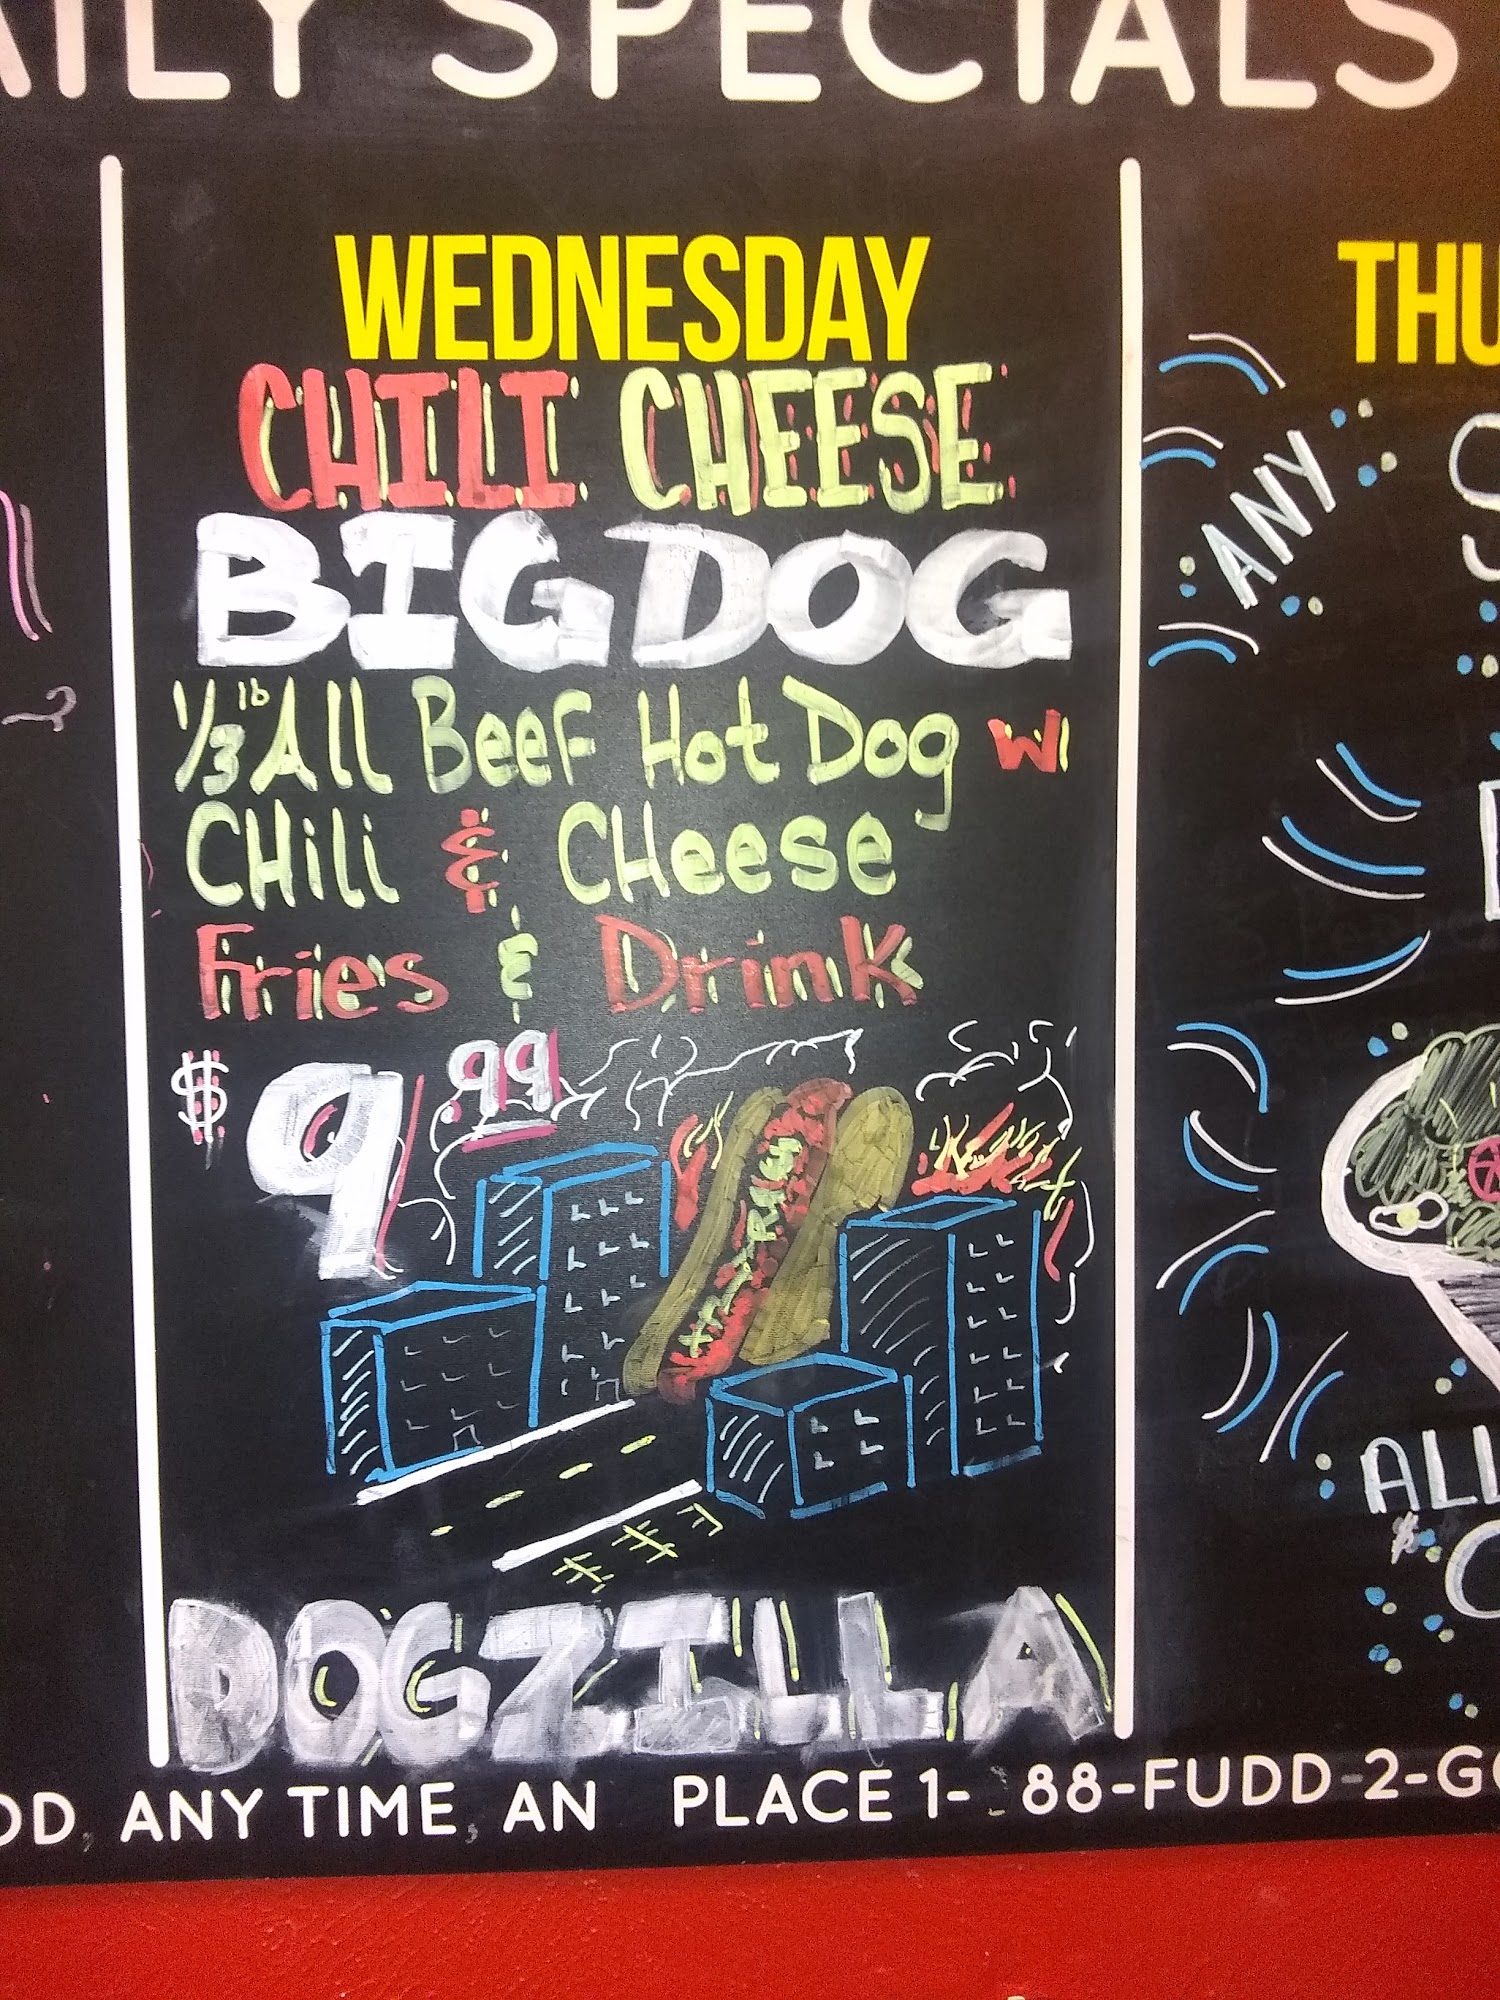 AILY SPECIALS
WEDNESDAY
CHILI CHEESE
BIG DOG
1/3 lb All Beef Hot Dog W/
CHili & CHeese
Fries & Drink
$9.99
DOGZILLA
THU
ANY
ALL
$
OD, ANY TIME, AN PLACE 1- 88-FUDD-2-GO